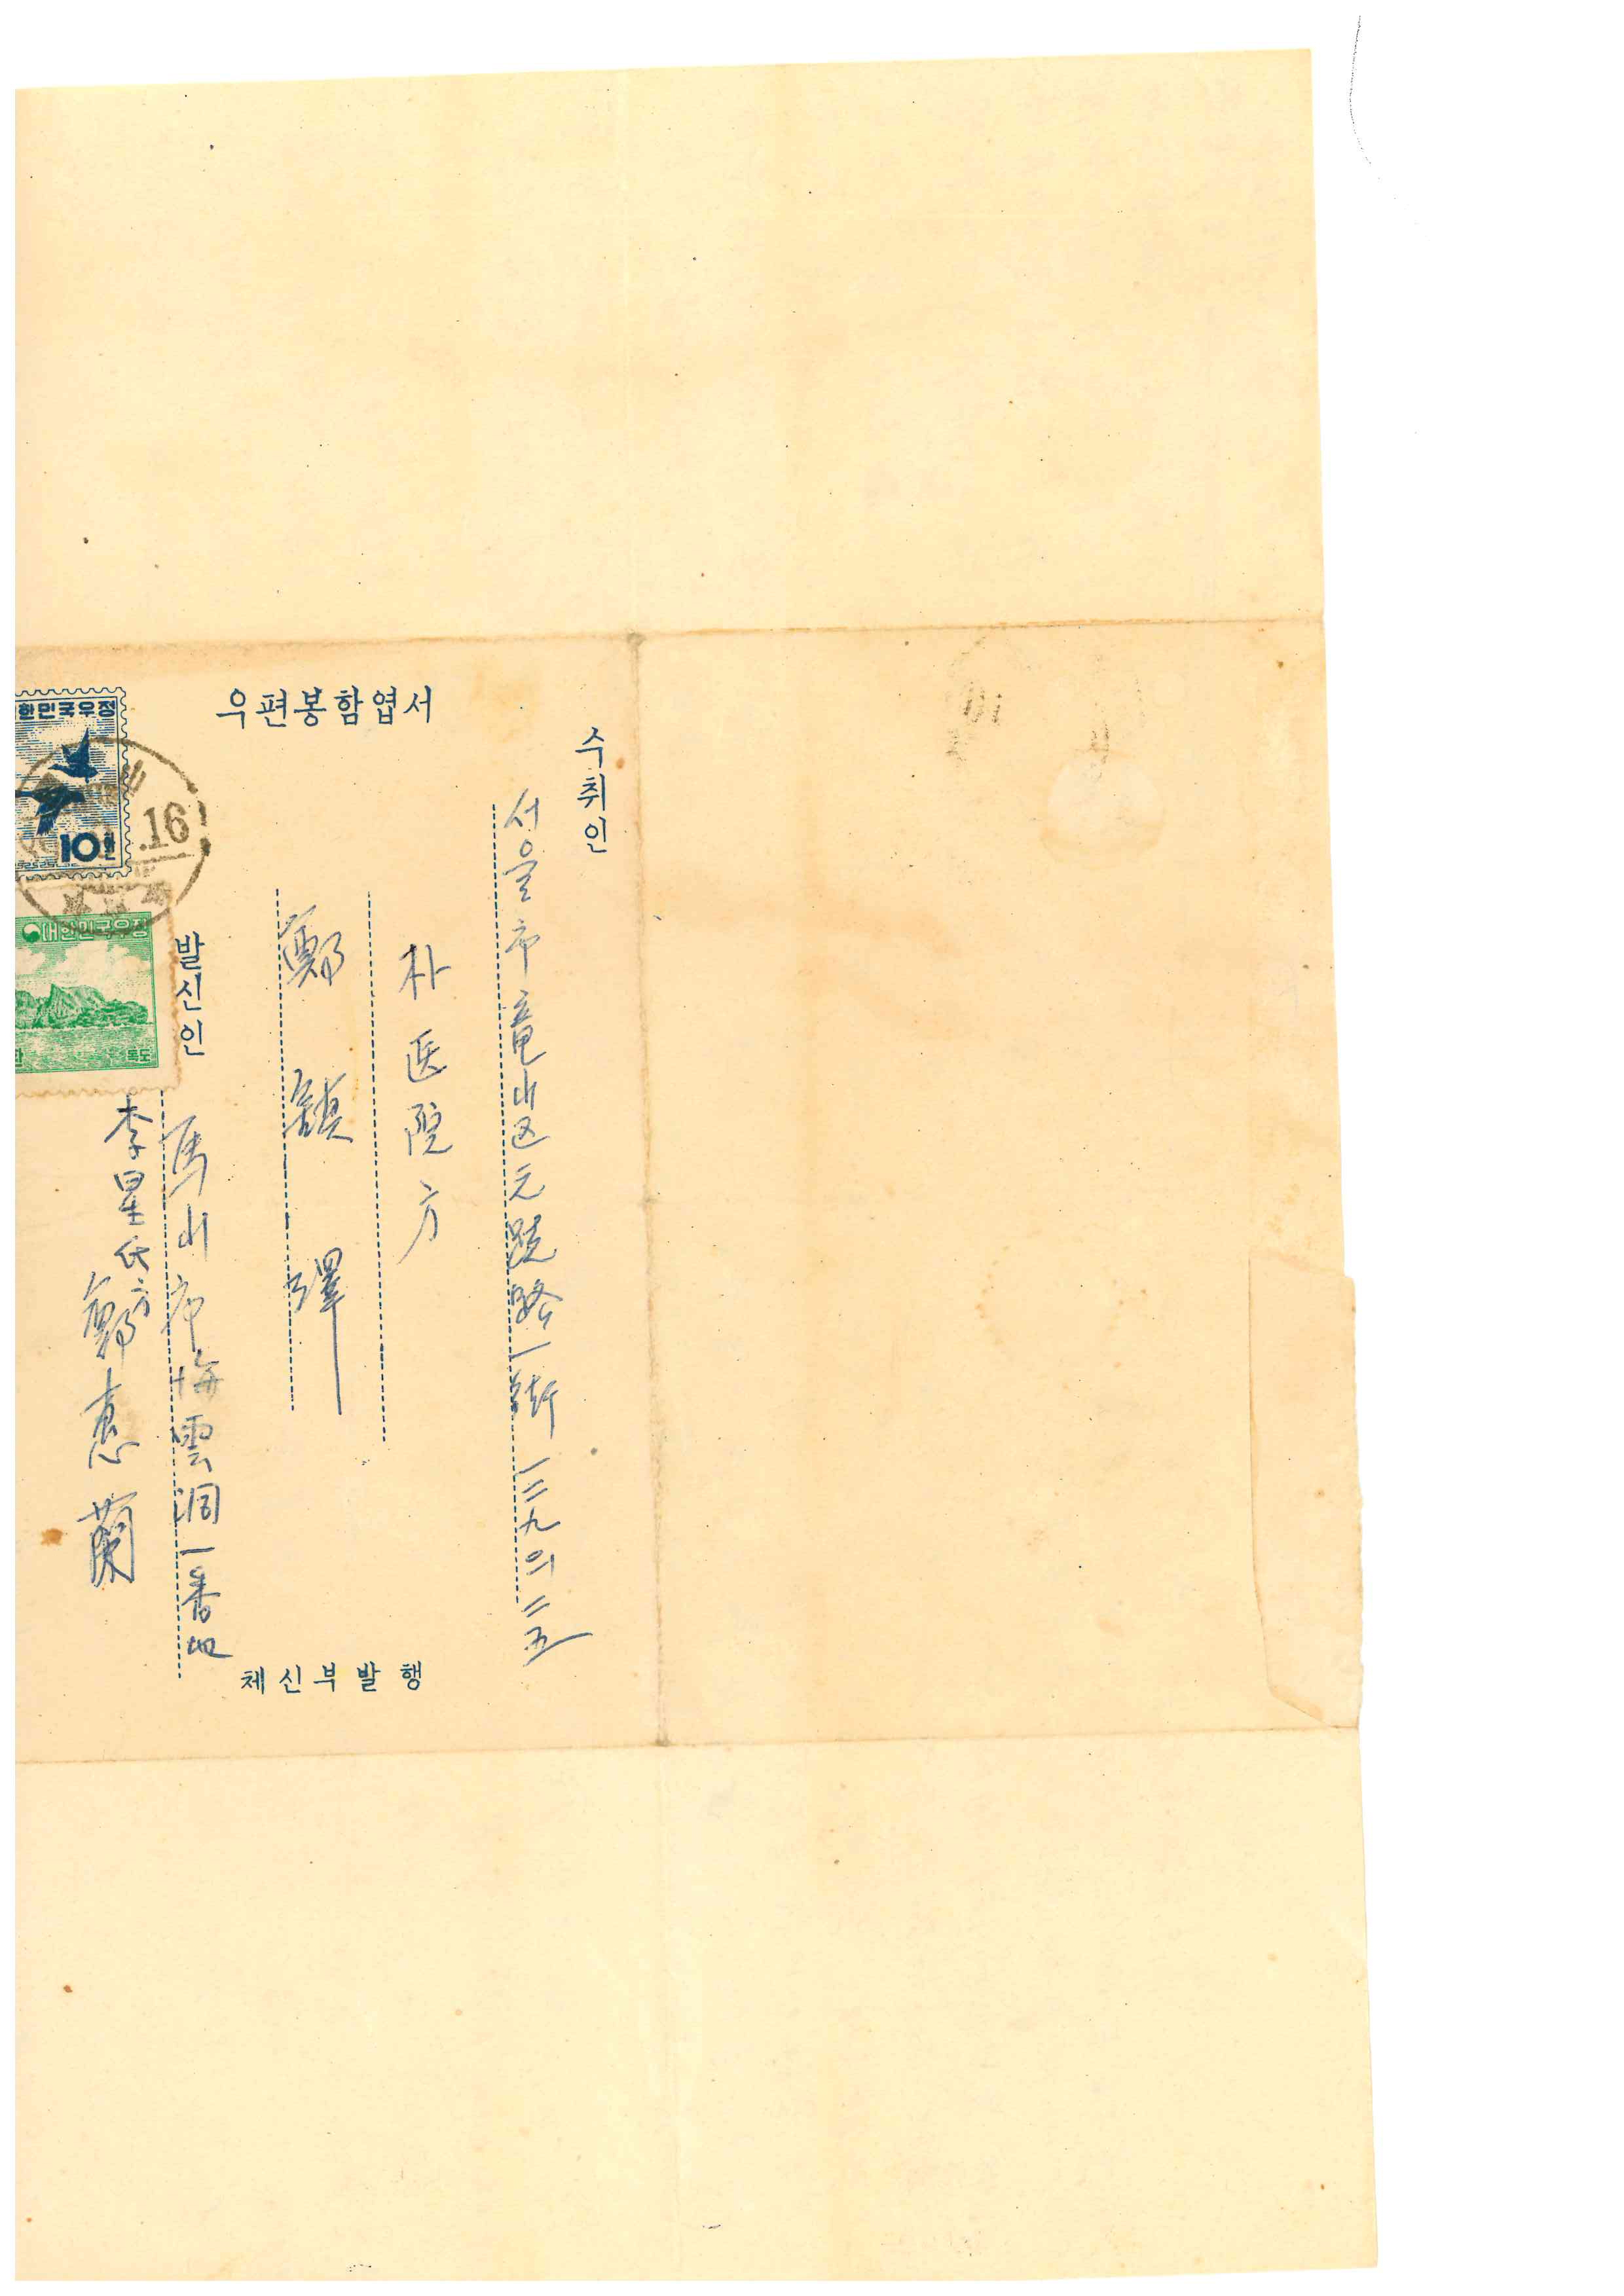 우편봉함엽서
수취인
서울市竜山区元暁路一街一二九의二五
朴医院方
鄭鎮澤
발신인
馬山市海雲洞一番地
李星氏方
鄭惠蘭
체신부발행
한민국우정
10환
山
.16
대한민국우정
독도